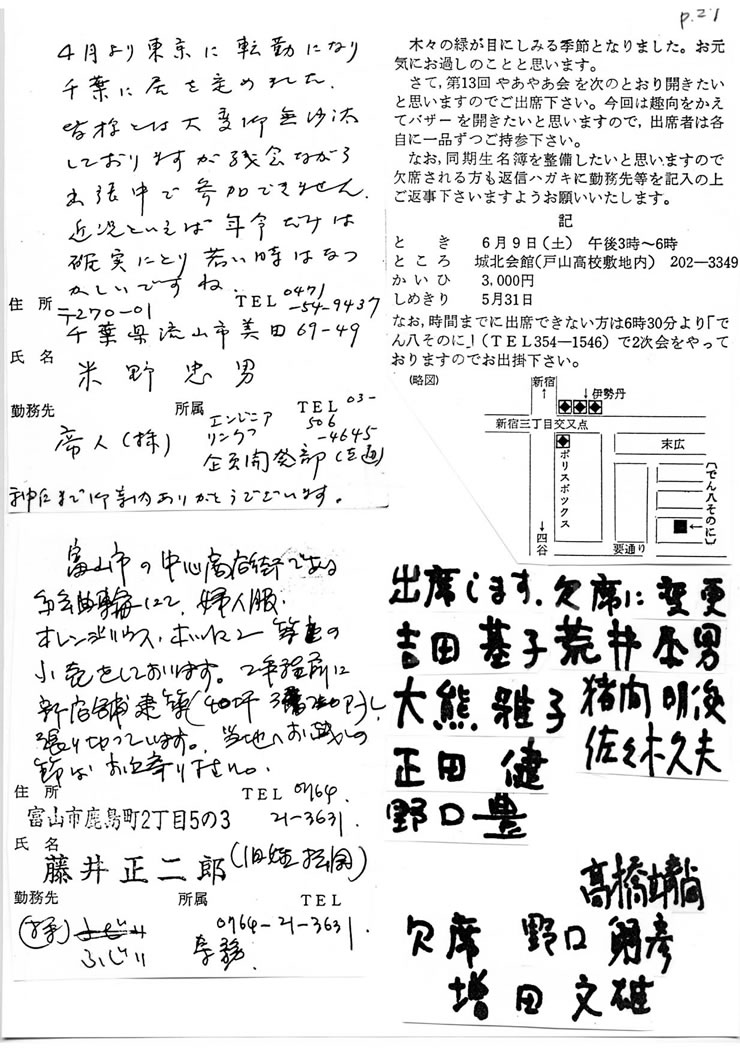 p.21
4月より東京に転勤になり
千葉に居を定めました.
皆様とは大変御無沙汰
しておりますが残念ながら
出張中で参加できません.
近況といえば年令だけは
確実にとり若い時はなつ
かしいですね.
住所 〒270-01 TEL 0471-54-9437
千葉県流山市美田69-49
氏名
米野忠男
勤務先 所属 TEL 03-506-4645
帝人(株) エンジニアリング
企画開発部
御案内ありがとうございます。
富山市の中心商店街である
総曲輪にて, 婦人服.
オレンジハウス・
小売をしております。2年程前に
新店舗建築
張り切っています。当地へお越しの
節はお立寄り下さい。
住所 TEL 0764.
富山市鹿島町2丁目5の3 21-3631
氏名
藤井正二郎
勤務先 所属 TEL
0764-21-3631.
(株)ふじい 専務
木々の緑が目にしみる季節となりました。お元
気にお過しのことと思います。
さて,第13回 やあやあ会 を次のとおり開きたい
と思いますのでご出席下さい。今回は趣向をかえ
てバザーを開きたいと思いますので,出席者は各
自に一品ずつご持参下さい。
なお,同期生名簿を整備したいと思いますので
欠席される方も返信ハガキに勤務先等を記入の上
ご返事下さいますようお願いいたします。
記
とき 6月9日(土) 午後3時〜6時
ところ 城北会館(戸山高校敷地内) 202―3349
かいひ 3,000円
しめきり 5月31日
なお,時間までに出席できない方は6時30分より「で
ん八そのに」(TEL354―1546)で2次会をやって
おりますのでお出掛下さい。
(略図)
新宿
↑
↓伊勢丹
新宿三丁目交叉点
ポリスボックス
末広
〔でん八そのに〕
←
↓
四谷
要通り
出席します.
吉田基子
大熊雅子
正田健
野口豊
欠席に変更
荒井
猪向明俊
佐々木久夫
高橋靖
欠席 野口
増田文雄